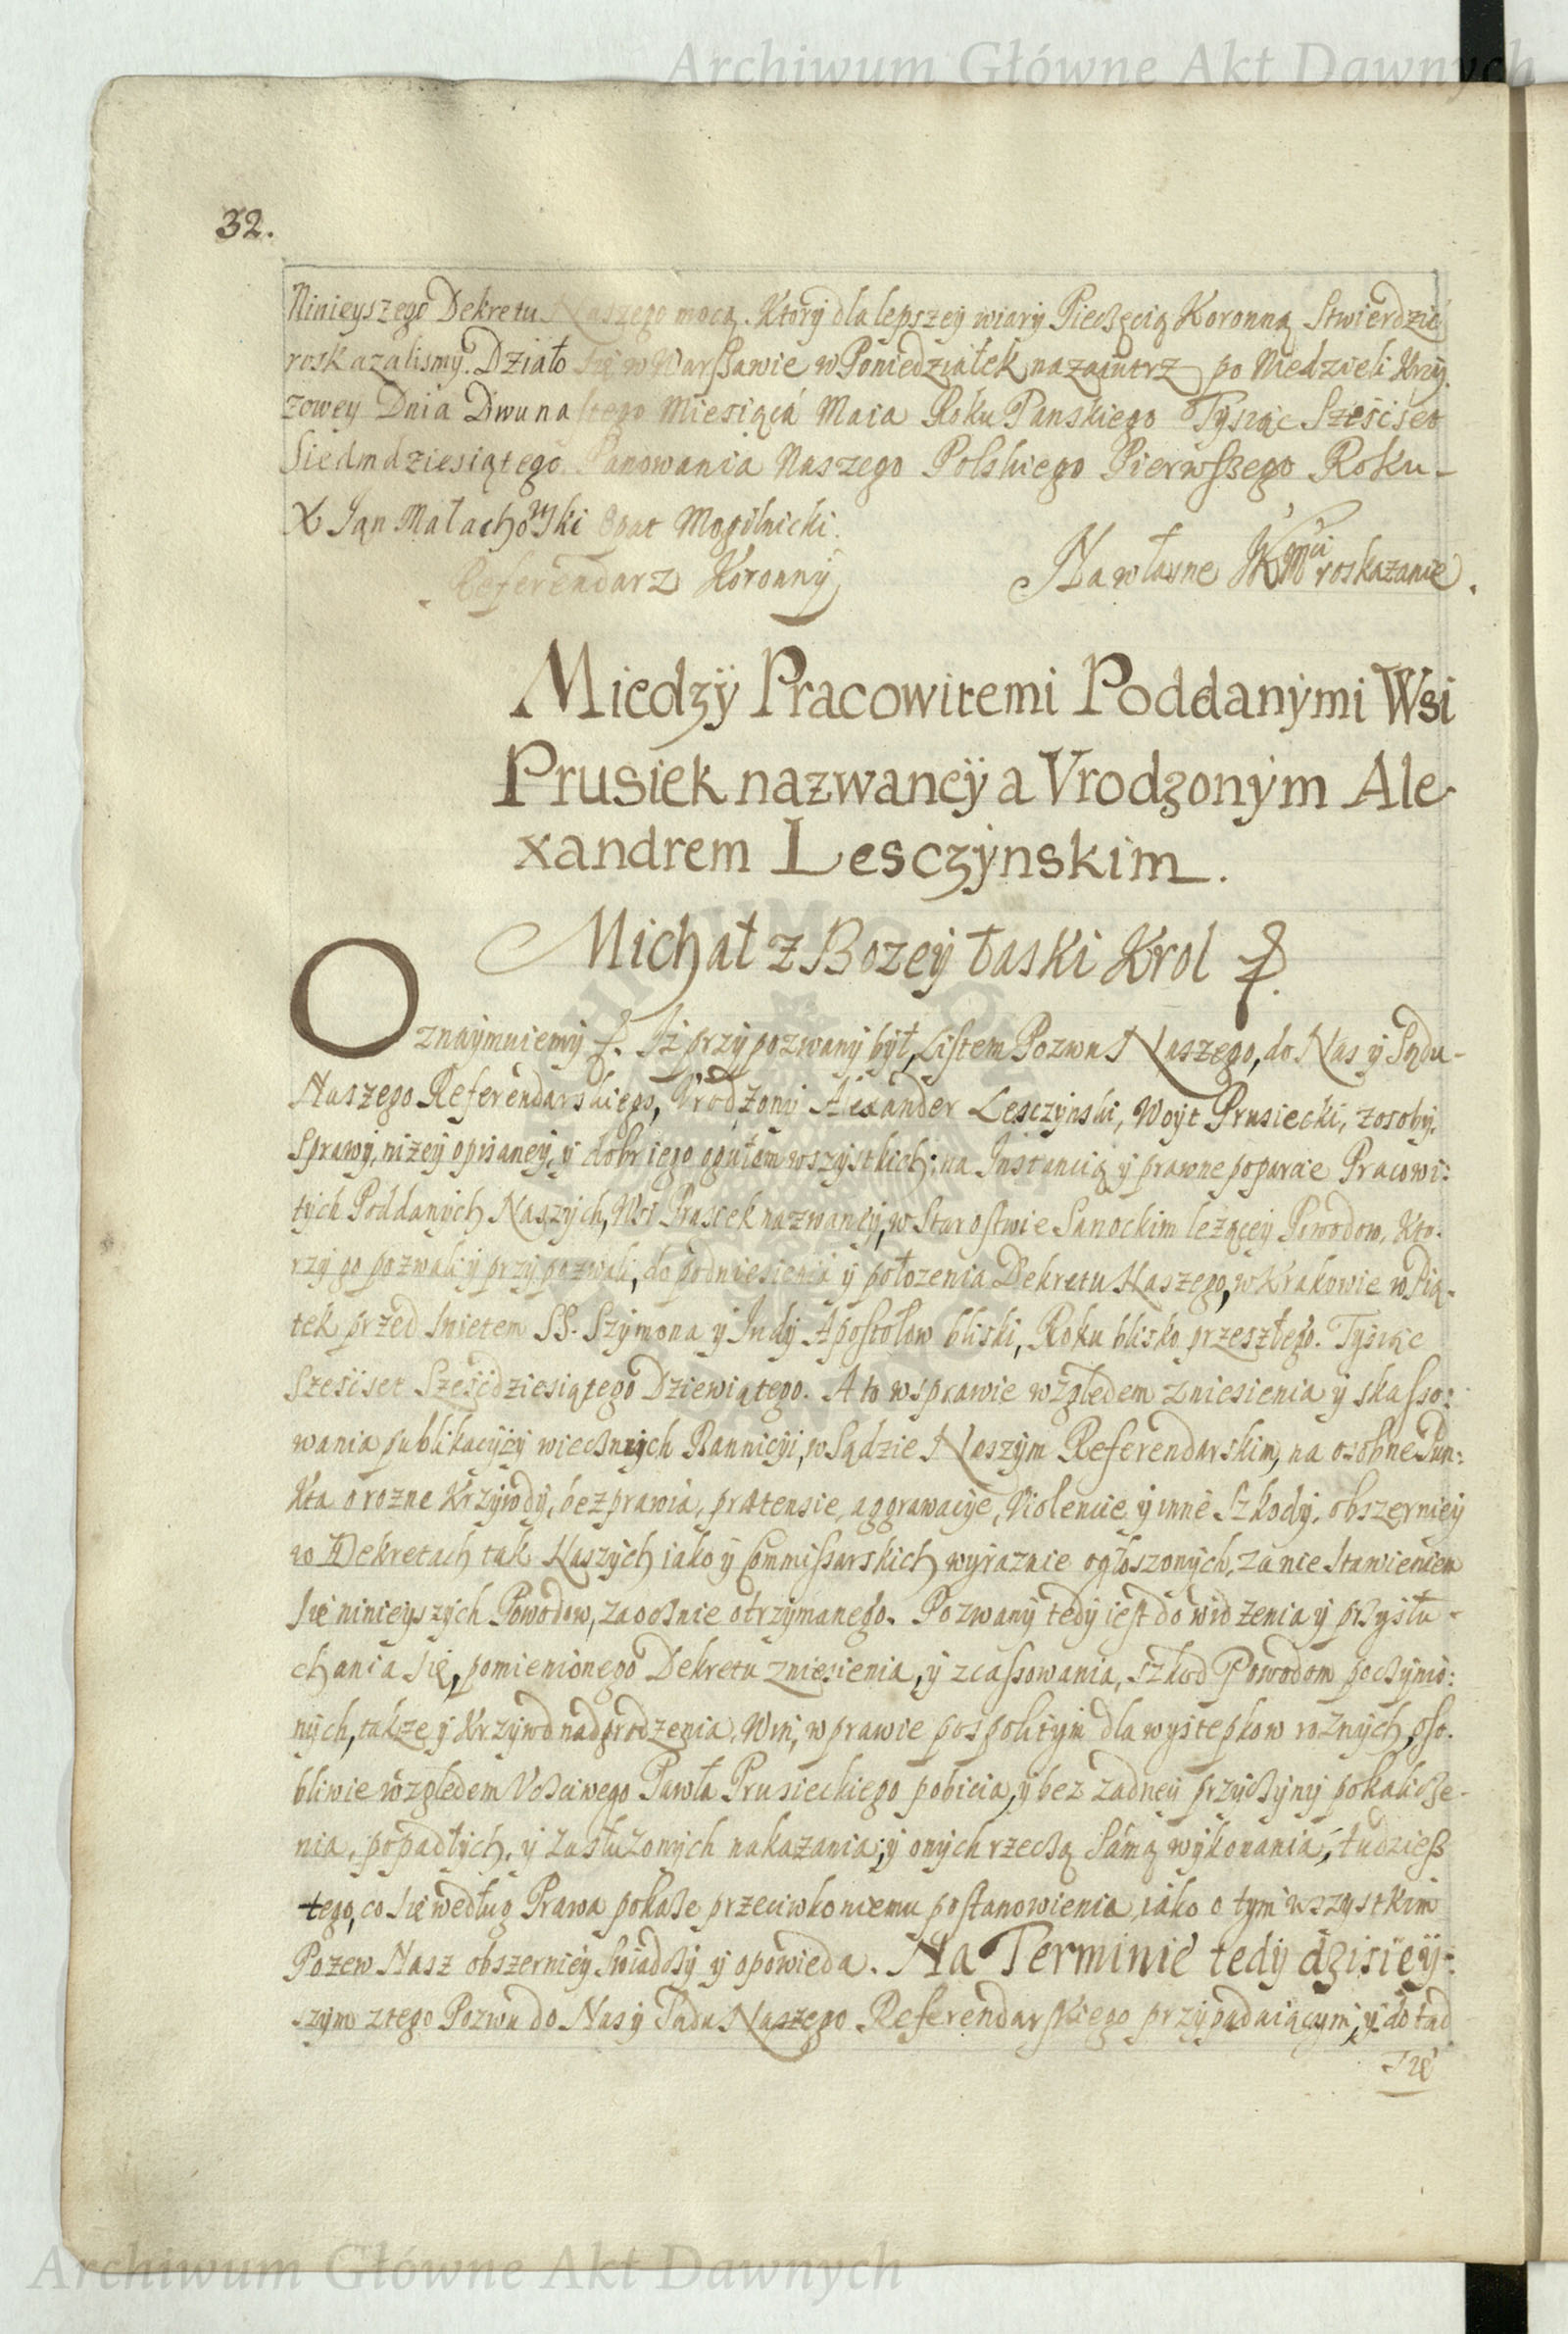 Archiwum Główne Akt Dawnych
32.
Ninieyszego Dekretu Naszego mocą. Ktory dla lepszey wiary Pieczęcią Koronną Stwierdzić
roskazalismy. Działo się w Warszawie w Poniedziałek nazaiutrz po Niedzieli Krzy,
zowey Dnia Dwunastego Miesiąca Maia Roku Panskiego Tysiąc Szescset
Siedmdziesiątego Panowania Naszego Polskiego Pierwszego Roku_
X Jan Małachowski Opat Mogilnicki.
Referendarz Koronny
Na własne JKMci roskazanie.
Miedzÿ Pracowitemi Poddanÿmi Wsi
Prusiek nazwaneÿ a Vrodzonÿm Ale-
xandrem Lesczÿnskim.
Michał z Bozey łaski Krol
Oznaÿmuiemÿ. Iż przÿpozwanÿ bÿł, Listem Pozwu Naszego, do Nas ÿ Sądu-
Naszego Referendarskiego, Vrodzonÿ Alexander Lesczÿnski, Woÿt Prusiecki, z osobÿ,
Sprawÿ, niżeÿ opisaneÿ, ÿ dobr iego ogułem wszÿstkich; na Instancią ÿ prawne poparcie Pracowi:
tÿch Poddanÿch Naszÿch, Wsi Prusiek nazwaneÿ, w Starostwie Sanockim leżąceÿ Powodow, Kto-
rzÿ go pozwali ÿ przÿpozwali, do podniesienia ÿ położenia Dekretu Naszego, w Krakowie w Pią-
tek przed Swietem SS. Szÿmona ÿ Judÿ Apostołow bliski, Roku blisko przeszłego. Tÿsiąc
Szescset Sześcdziesiątego Dziewiątego. A to w sprawie względem zniesienia ÿ skasso:
wania publikacÿÿ wiecznÿch Bannicÿi, w Sądzie Naszÿm Referendarskim, na osobne Pun:
kta o rozne Krzÿwdÿ, bezprawia, prætensie, aggrawacÿe, Violencie ÿ inne Szkodÿ, obszerniej
w Dekretach tak Naszÿch iako ÿ Commissarskich wÿraznie ogłoszonÿch, za nie Stawieniem
się ninieÿszÿch Powodow, zaocznie otrzÿmanego. Pozwanÿ tedÿ iest do widzenia ÿ przÿsłu-
chania się, pomienionego Dekretu zniesienia, ÿ zcassowania, szkod Powodom poczÿnio:
nÿch, także ÿ Krzÿwd nadgrodzenia, Win, w prawie pospolitÿm dla wÿstepkow roznÿch, oso-
bliwie względem Vczciwego Pawła Prusieckiego pobicia, ÿ bez żadneÿ przÿczÿnÿ pokalicze-
nia, popadłÿch, ÿ zasłużonÿch nakazania; ÿ onÿch rzeczą samą wÿkonania, tudziesz
tego, co się według Prawa pokaże przeciwko niemu postanowienia, iako o tÿm wszÿstkim
Pozew Nasz obszernieÿ Swiadczÿ ÿ opowieda. Na Terminie tedÿ dzisieÿ-
szÿm z tego Pozwu do Nas ÿ Sądu Naszego Referendarskiego przÿpadaiącÿm, ÿ do tąd
się
Archiwum Główne Akt Dawnych